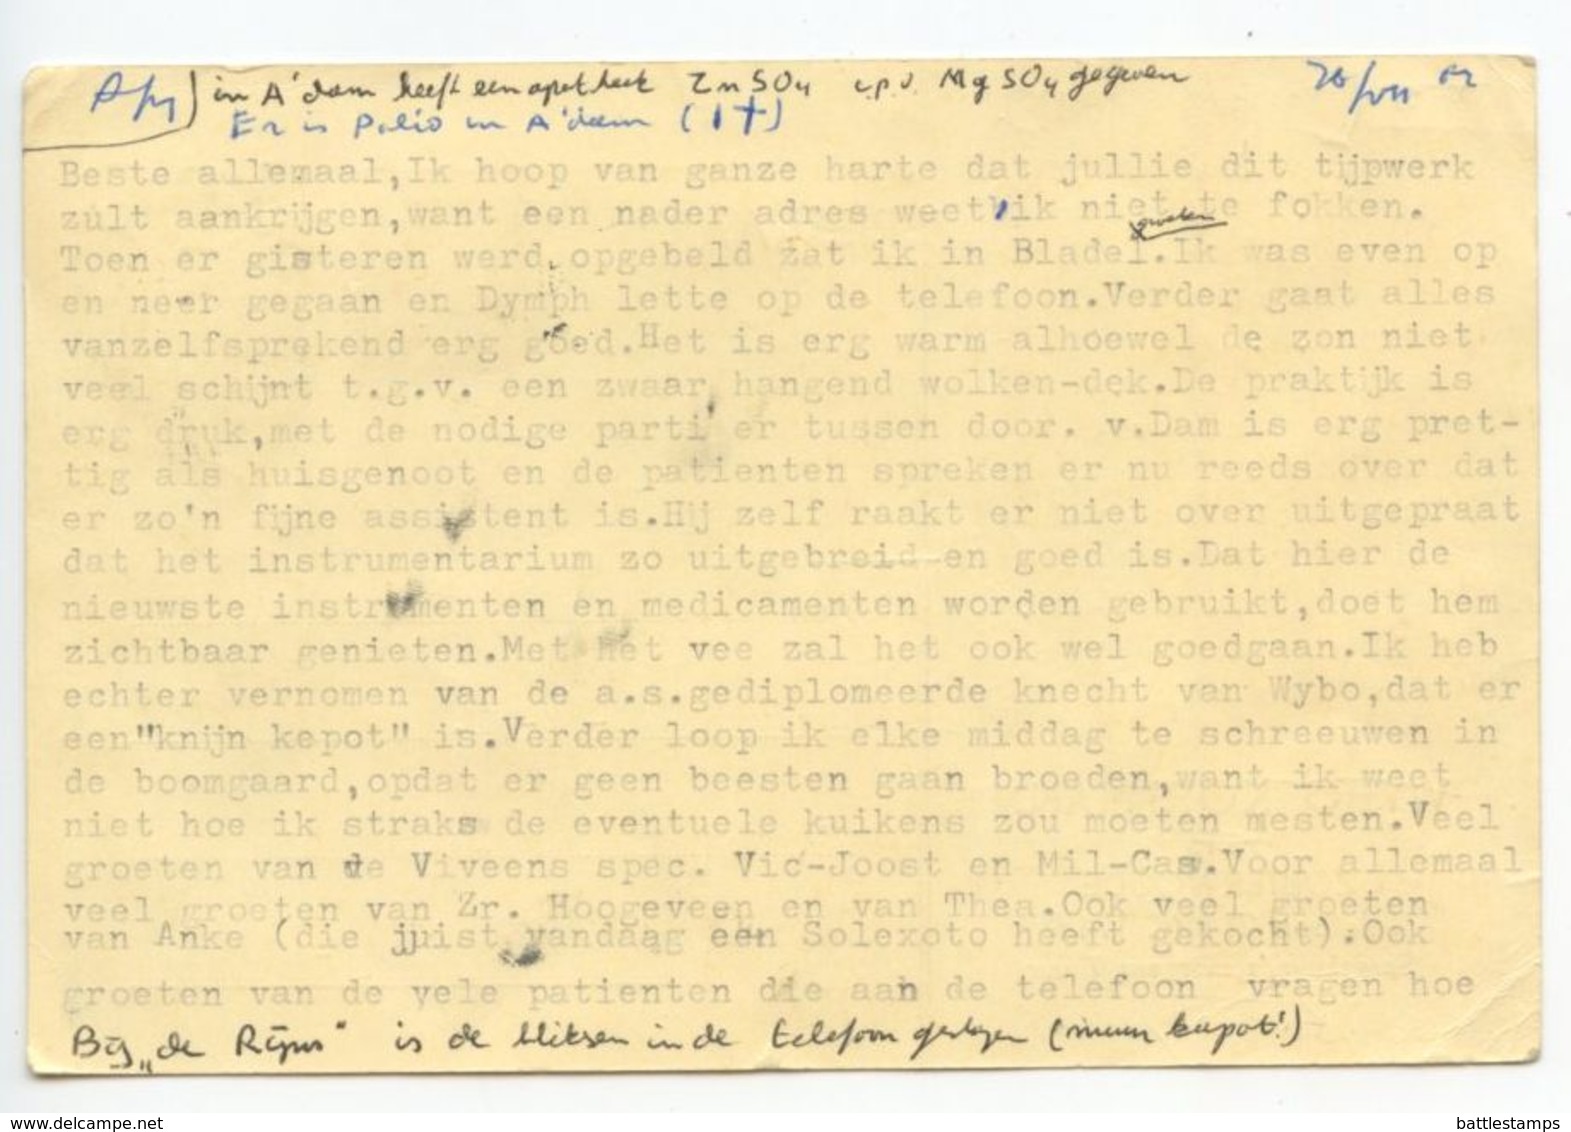 in A'dam heeft een apotheek ZnSO4 i.p.v. MgSO4 gegeven
Er is Polio in A'dam (1†)
Beste allemaal,Ik hoop van ganze harte dat jullie dit tijpwerk
zult aankrijgen,want een nader adres weet ik niet te fokken.
Toen er gisteren werd opgebeld zat ik in Bladel.Ik was even op
en neer gegaan en Dymph lette op de telefoon.Verder gaat alles
vanzelfsprekend erg goed.Het is erg warm alhoewel de zon niet
veel schijnt t.g.v. een zwaar hangend wolken-dek.De praktijk is
erg druk,met de nodige parti er tussen door. v.Dam is erg pret-
tig als huisgenoot en de patienten spreken er nu reeds over dat
er zo'n fijne assistent is.Hij zelf raakt er niet over uitgepraat
dat het instrumentarium zo uitgebreid en goed is.Dat hier de
nieuwste instrumenten en medicamenten worden gebruikt,doet hem
zichtbaar genieten.Met het vee zal het ook wel goedgaan.Ik heb
echter vernomen van de a.s.gediplomeerde knecht van Wybo,dat er
een"knijn kepot" is.Verder loop ik elke middag te schreeuwen in
de boomgaard,opdat er geen beesten gaan broeden,want ik weet
niet hoe ik straks de eventuele kuikens zou moeten mesten.Veel
groeten van de Viveens spec. Vic-Joost en Mil-Cas.Voor allemaal
veel groeten van Zr. Hoogeveen en van Thea.Ook veel groeten
van Anke (die juist vandaag een Solexoto heeft gekocht).Ook
groeten van de vele patienten die aan de telefoon vragen hoe
Bij „de Rijns" is de bliksem in de telefoon geslagen (kapot!)
www.delcampe.net
battlestamps